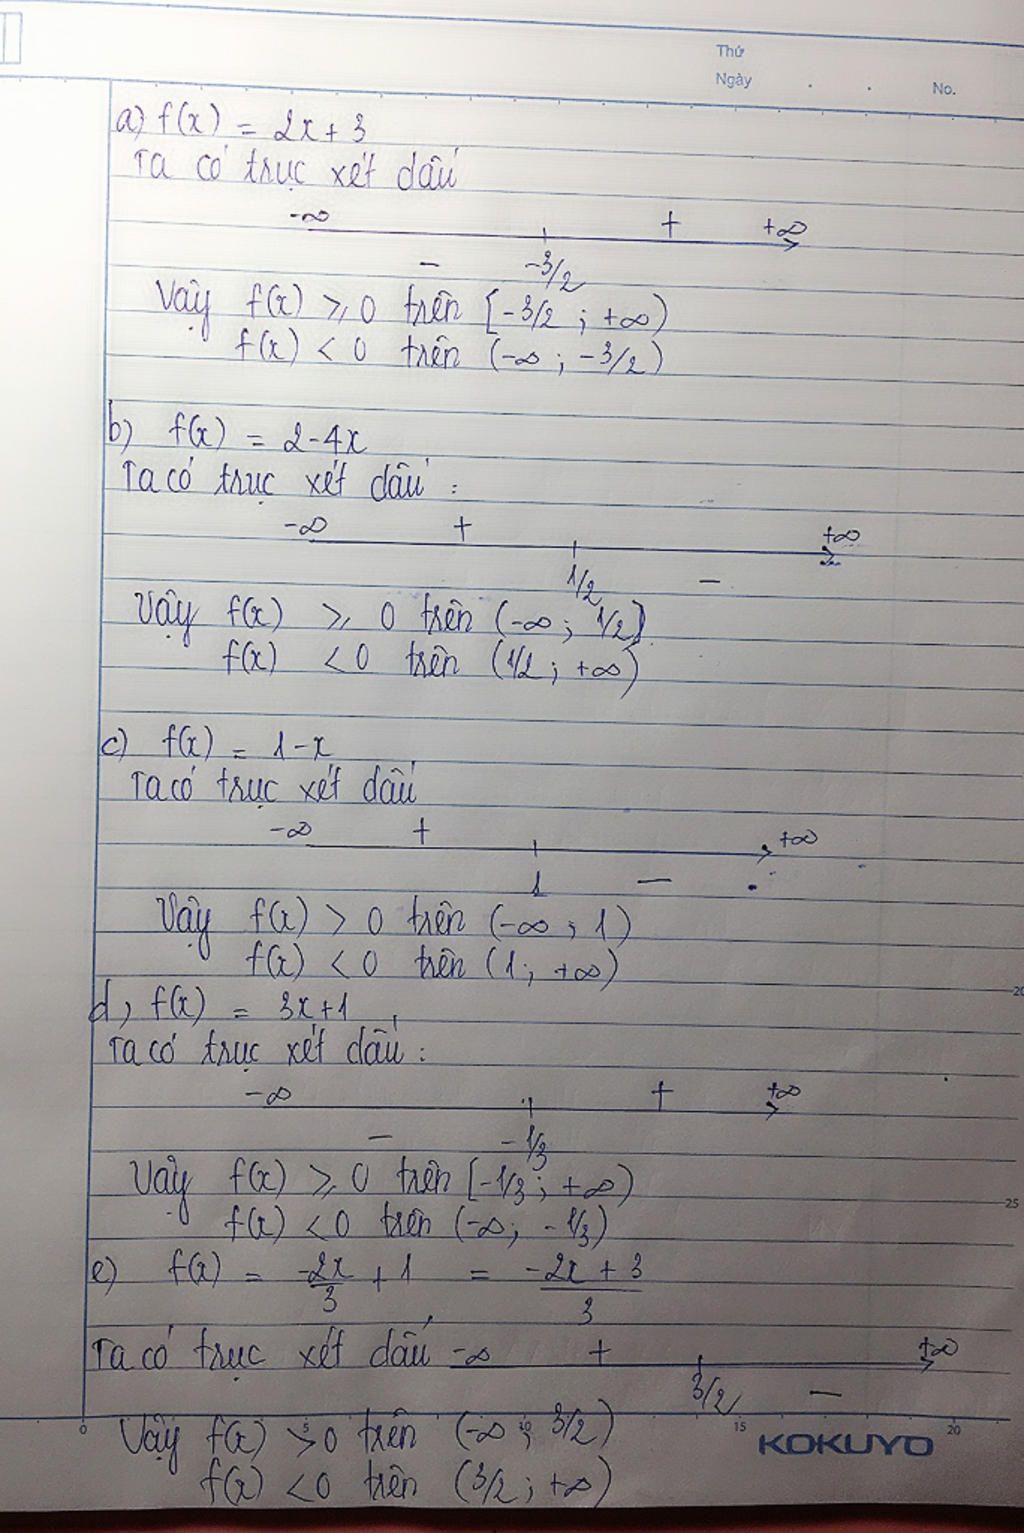 Thứ
Ngày . . No.
a) f(x) = 2x + 3
Ta có trục xét dấu
-∞ + +∞
- -3/2
Vậy f(x) ⩾ 0 trên [-3/2 ; +∞)
f(x) < 0 trên (-∞ ; -3/2)
b) f(x) = 2-4x
Ta có trục xét dấu :
-∞ + +∞
1/2 -
Vậy f(x) ⩾ 0 trên (-∞ ; 1/2]
f(x) < 0 trên (1/2 ; +∞)
c) f(x) = 1-x
Ta có trục xét dấu
-∞ + +∞
1 -
Vậy f(x) > 0 trên (-∞ ; 1)
f(x) < 0 trên (1 ; +∞)
d) f(x) = 3x+1
Ta có trục xét dấu :
-∞ + +∞
- -1/3
Vậy f(x) ⩾ 0 trên [-1/3 ; +∞)
f(x) < 0 trên (-∞ ; -1/3)
e) f(x) = -2x/3 + 1 = -2x + 3/3
Ta có trục xét dấu -∞ + +∞
3/2 -
Vậy f(x) > 0 trên (-∞ ; 3/2)
f(x) < 0 trên (3/2 ; +∞)
0 5 10 15 20
20
25
KOKUYO